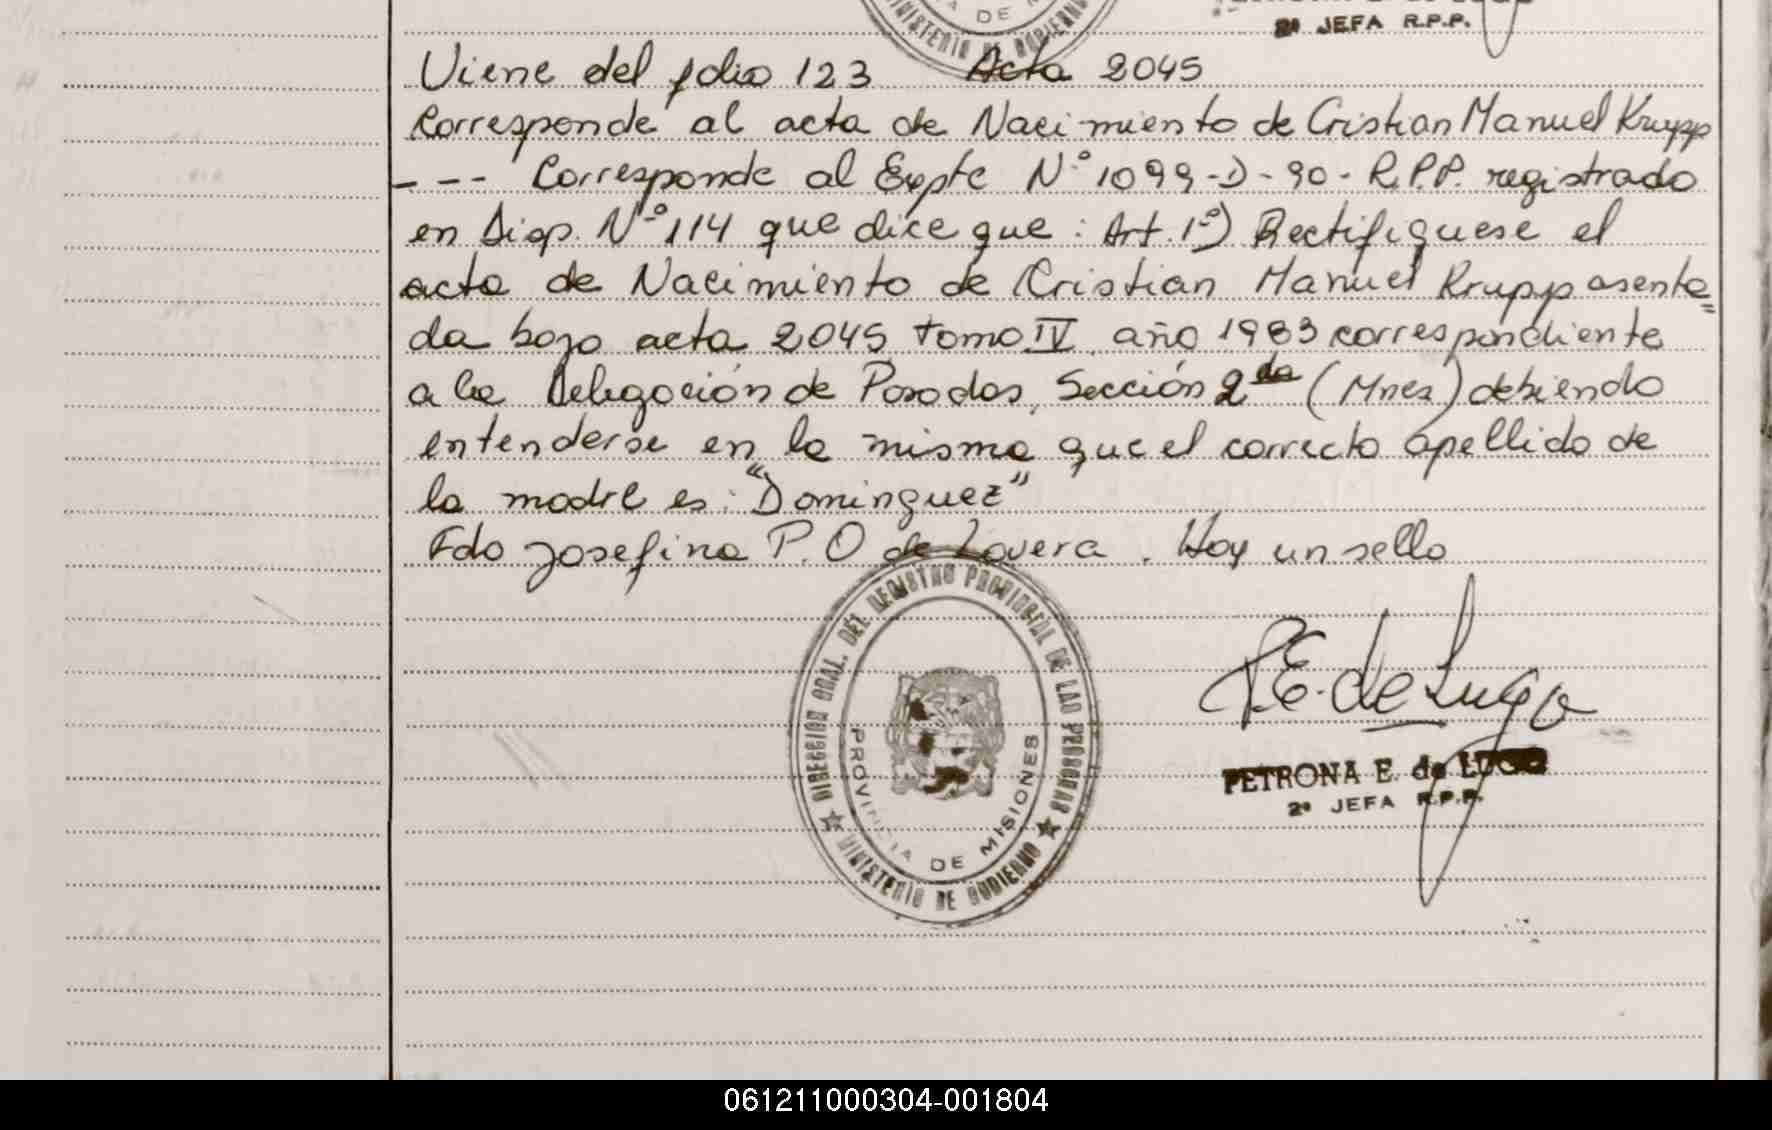 2ª JEFA R.P.P.
Viene del folio 123 Acta 2045
Corresponde al acta de Nacimiento de Cristian Manuel Krupp
--- Corresponde al Expte Nº 1099-D-90- R.P.P. registrado
en Disp. Nº 114 que dice que: Art. 1º) Rectifiquese el
acta de Nacimiento de Cristian Manuel Krupp asenta=
da bajo acta 2045 tomo IV año 1983 correspondiente
a la Delegación de Posadas, Sección 2da (Mnes) debiendo
entenderse en la misma que el correcto apellido de
la madre es: "Dominguez"
Fdo Josefina P.O de Lovera. Hay un sello
DIRECCION GRAL. DEL REGISTRO PROVINCIAL DE LAS PERSONAS
MINISTERIO DE GOBIERNO
PROVINCIA DE MISIONES
P.E. de Lugo
PETRONA E de LUGO
2ª JEFA R.P.P.
061211000304-001804